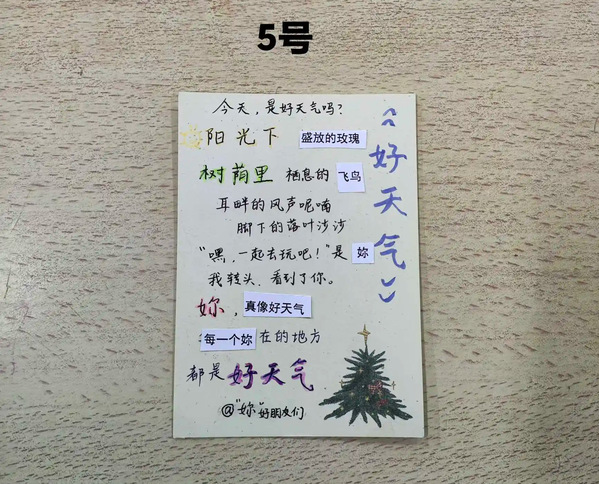 5号
《好天气》
今天，是好天气吗？
阳光下 盛放的玫瑰
树荫里 栖息的 飞鸟
耳畔的风声呢喃
脚下的落叶沙沙
“嘿，一起去玩吧！”是 妳
我转头，看到了你。
妳，真像好天气
每一个妳 在的地方
都是好天气
@“妳”好朋友们